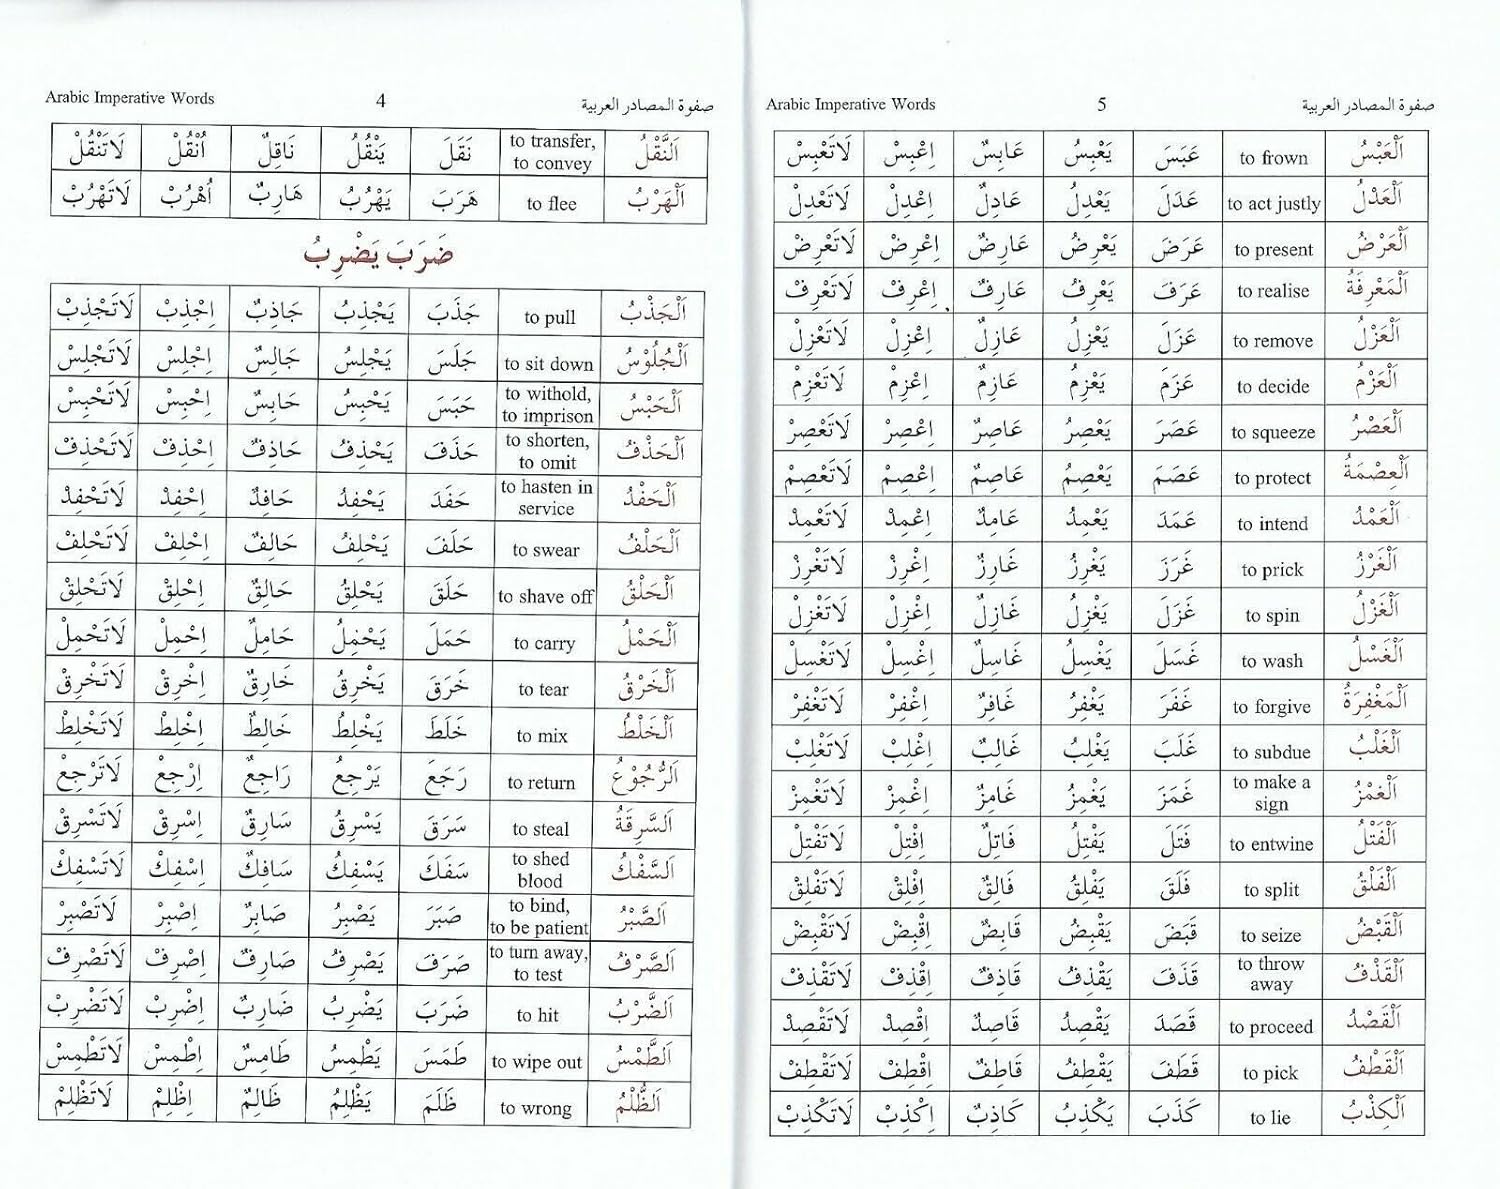 Arabic Imperative Words 4 صفوة المصادر العربية
اَلنَّقْلُ to transfer, to convey نَقَلَ يَنْقُلُ نَاقِلٌ اُنْقُلْ لَاتَنْقُلْ
اَلْهَرْبُ to flee هَرَبَ يَهْرُبُ هَارِبٌ اُهْرُبْ لَاتَهْرُبْ
ضَرَبَ يَضْرِبُ
اَلْجَذْبُ to pull جَذَبَ يَجْذِبُ جَاذِبٌ اِجْذِبْ لَاتَجْذِبْ
اَلْجُلُوْسُ to sit down جَلَسَ يَجْلِسُ جَالِسٌ اِجْلِسْ لَاتَجْلِسْ
اَلْحَبْسُ to withold, to imprison حَبَسَ يَحْبِسُ حَابِسٌ اِحْبِسْ لَاتَحْبِسْ
اَلْحَذْفُ to shorten, to omit حَذَفَ يَحْذِفُ حَاذِفٌ اِحْذِفْ لَاتَحْذِفْ
اَلْحَفْدُ to hasten in service حَفَدَ يَحْفِدُ حَافِدٌ اِحْفِدْ لَاتَحْفِدْ
اَلْحَلْفُ to swear حَلَفَ يَحْلِفُ حَالِفٌ اِحْلِفْ لَاتَحْلِفْ
اَلْحَلْقُ to shave off حَلَقَ يَحْلِقُ حَالِقٌ اِحْلِقْ لَاتَحْلِقْ
اَلْحَمْلُ to carry حَمَلَ يَحْمِلُ حَامِلٌ اِحْمِلْ لَاتَحْمِلْ
اَلْخَرْقُ to tear خَرَقَ يَخْرِقُ خَارِقٌ اِخْرِقْ لَاتَخْرِقْ
اَلْخَلْطُ to mix خَلَطَ يَخْلِطُ خَالِطٌ اِخْلِطْ لَاتَخْلِطْ
اَلرُّجُوْعُ to return رَجَعَ يَرْجِعُ رَاجِعٌ اِرْجِعْ لَاتَرْجِعْ
اَلسَّرِقَةُ to steal سَرَقَ يَسْرِقُ سَارِقٌ اِسْرِقْ لَاتَسْرِقْ
اَلسَّفْكُ to shed blood سَفَكَ يَسْفِكُ سَافِكٌ اِسْفِكْ لَاتَسْفِكْ
اَلصَّبْرُ to bind, to be patient صَبَرَ يَصْبِرُ صَابِرٌ اِصْبِرْ لَاتَصْبِرْ
اَلصَّرْفُ to turn away, to test صَرَفَ يَصْرِفُ صَارِفٌ اِصْرِفْ لَاتَصْرِفْ
اَلضَّرْبُ to hit ضَرَبَ يَضْرِبُ ضَارِبٌ اِضْرِبْ لَاتَضْرِبْ
اَلطَّمْسُ to wipe out طَمَسَ يَطْمِسُ طَامِسٌ اِطْمِسْ لَاتَطْمِسْ
اَلظُّلْمُ to wrong ظَلَمَ يَظْلِمُ ظَالِمٌ اِظْلِمْ لَاتَظْلِمْ
Arabic Imperative Words 5 صفوة المصادر العربية
اَلْعَبْسُ to frown عَبَسَ يَعْبِسُ عَابِسٌ اِعْبِسْ لَاتَعْبِسْ
اَلْعَدْلُ to act justly عَدَلَ يَعْدِلُ عَادِلٌ اِعْدِلْ لَاتَعْدِلْ
اَلْعَرْضُ to present عَرَضَ يَعْرِضُ عَارِضٌ اِعْرِضْ لَاتَعْرِضْ
اَلْمَعْرِفَةُ to realise عَرَفَ يَعْرِفُ عَارِفٌ اِعْرِفْ لَاتَعْرِفْ
اَلْعَزْلُ to remove عَزَلَ يَعْزِلُ عَازِلٌ اِعْزِلْ لَاتَعْزِلْ
اَلْعَزْمُ to decide عَزَمَ يَعْزِمُ عَازِمٌ اِعْزِمْ لَاتَعْزِمْ
اَلْعَصْرُ to squeeze عَصَرَ يَعْصِرُ عَاصِرٌ اِعْصِرْ لَاتَعْصِرْ
اَلْعِصْمَةُ to protect عَصَمَ يَعْصِمُ عَاصِمٌ اِعْصِمْ لَاتَعْصِمْ
اَلْعَمْدُ to intend عَمَدَ يَعْمِدُ عَامِدٌ اِعْمِدْ لَاتَعْمِدْ
اَلْغَرْزُ to prick غَرَزَ يَغْرِزُ غَارِزٌ اِغْرِزْ لَاتَغْرِزْ
اَلْغَزْلُ to spin غَزَلَ يَغْزِلُ غَازِلٌ اِغْزِلْ لَاتَغْزِلْ
اَلْغَسْلُ to wash غَسَلَ يَغْسِلُ غَاسِلٌ اِغْسِلْ لَاتَغْسِلْ
اَلْمَغْفِرَةُ to forgive غَفَرَ يَغْفِرُ غَافِرٌ اِغْفِرْ لَاتَغْفِرْ
اَلْغَلْبُ to subdue غَلَبَ يَغْلِبُ غَالِبٌ اِغْلِبْ لَاتَغْلِبْ
اَلْغَمْزُ to make a sign غَمَزَ يَغْمِزُ غَامِزٌ اِغْمِزْ لَاتَغْمِزْ
اَلْفَتْلُ to entwine فَتَلَ يَفْتِلُ فَاتِلٌ اِفْتِلْ لَاتَفْتِلْ
اَلْفَلْقُ to split فَلَقَ يَفْلِقُ فَالِقٌ اِفْلِقْ لَاتَفْلِقْ
اَلْقَبْضُ to seize قَبَضَ يَقْبِضُ قَابِضٌ اِقْبِضْ لَاتَقْبِضْ
اَلْقَذْفُ to throw away قَذَفَ يَقْذِفُ قَاذِفٌ اِقْذِفْ لَاتَقْذِفْ
اَلْقَصْدُ to proceed قَصَدَ يَقْصِدُ قَاصِدٌ اِقْصِدْ لَاتَقْصِدْ
اَلْقَطْفُ to pick قَطَفَ يَقْطِفُ قَاطِفٌ اِقْطِفْ لَاتَقْطِفْ
اَلْكِذْبُ to lie كَذَبَ يَكْذِبُ كَاذِبٌ اِكْذِبْ لَاتَكْذِبْ